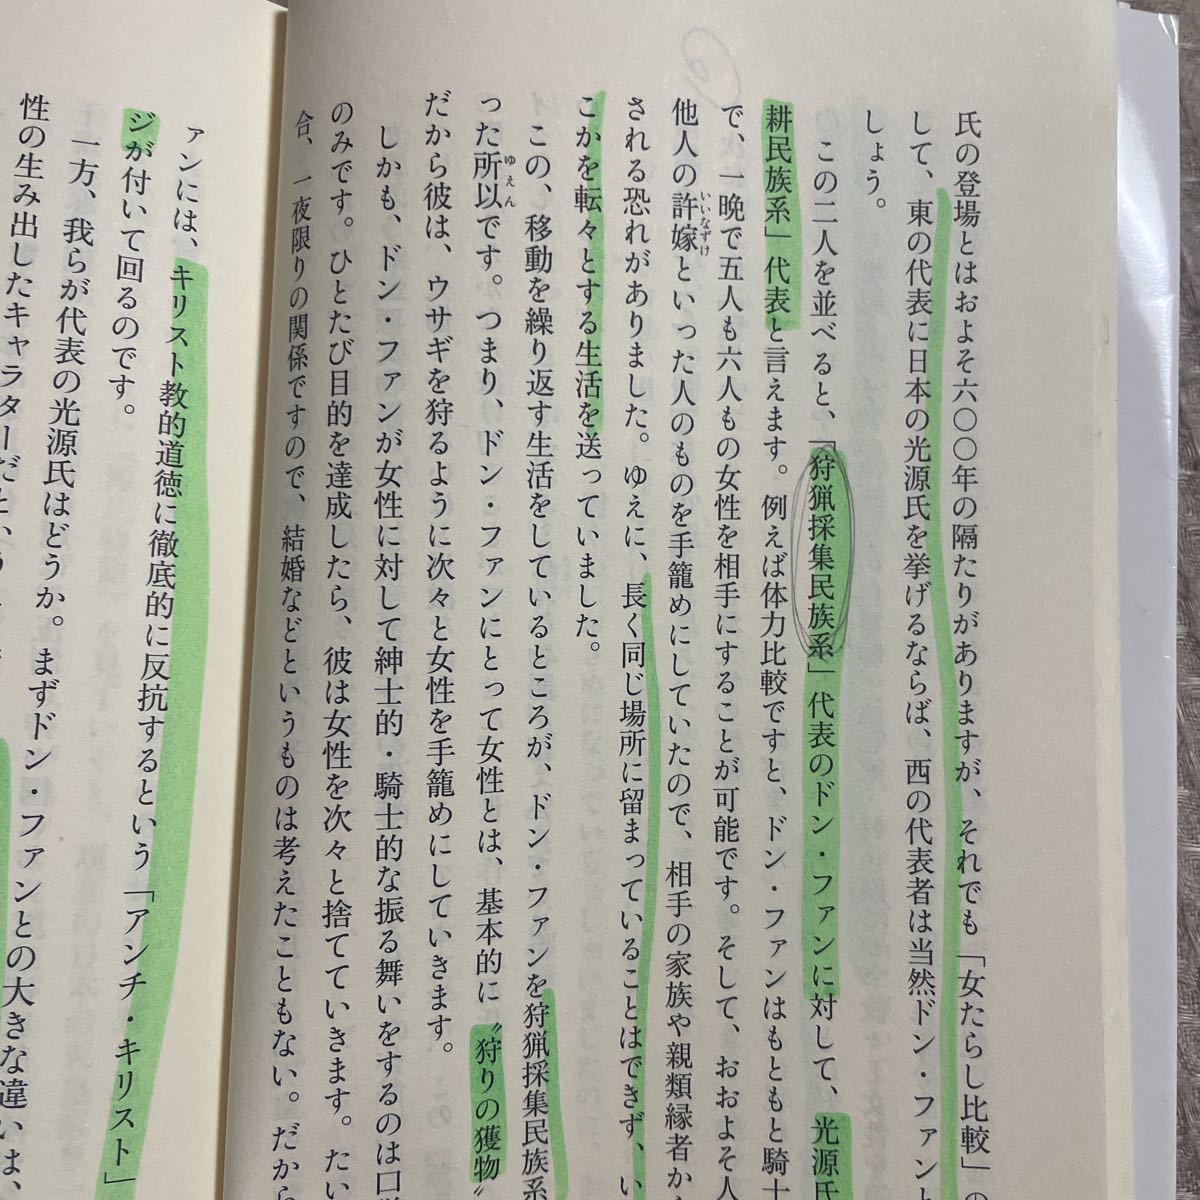 氏の登場とはおよそ六〇〇年の隔たりがありますが、それでも「女たらし比較」の
して、東の代表に日本の光源氏を挙げるならば、西の代表者は当然ドン・ファンと
しょう。
この二人を並べると、「狩猟採集民族系」代表のドン・ファンに対して、光源氏
耕民族系」代表と言えます。例えば体力比較ですと、ドン・ファンはもともと騎士
で、一晩で五人も六人もの女性を相手にすることが可能です。そして、おおよそ人
他人の許嫁といった人のものを手籠めにしていたので、相手の家族や親類縁者か
いいなずけ
される恐れがありました。ゆえに、長く同じ場所に留まっていることはできず、い
こかを転々とする生活を送っていました。
この、移動を繰り返す生活をしているところが、ドン・ファンを狩猟採集民族系
った所以です。つまり、ドン・ファンにとって女性とは、基本的に〝狩りの獲物〟
ゆえん
だから彼は、ウサギを狩るように次々と女性を手籠めにしていきます。
しかも、ドン・ファンが女性に対して紳士的・騎士的な振る舞いをするのは口説
のみです。ひとたび目的を達成したら、彼は女性を次々と捨てていきます。たい
合、一夜限りの関係ですので、結婚などというものは考えたこともない。だから
ァンには、キリスト教的道徳に徹底的に反抗するという「アンチ・キリスト」
ジが付いて回るのです。
一方、我らが代表の光源氏はどうか。まずドン・ファンとの大きな違いは、
性の生み出したキャラクターだという